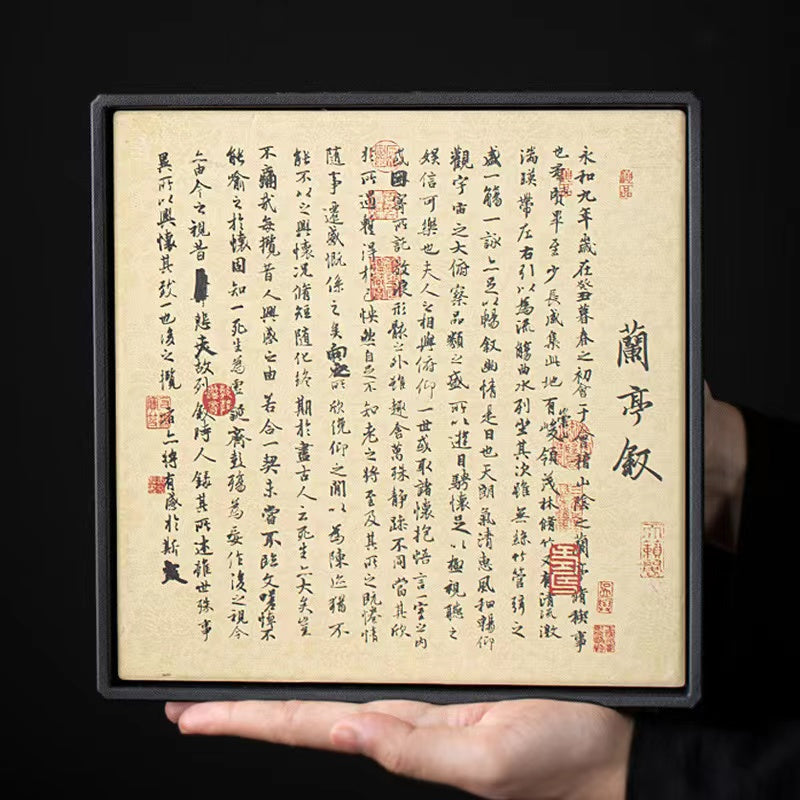 蘭亭叙
永和九年歲在癸丑暮春之初會于會稽山陰之蘭亭脩稧事
也羣賢畢至少長咸集此地有崇山峻領茂林脩竹又有清流激
湍暎帶左右引以為流觴曲水列坐其次雖無絲竹管弦之
盛一觴一詠亦足以暢叙幽情是日也天朗氣清惠風和暢仰
觀宇宙之大俯察品類之盛所以遊目騁懷足以極視聽之
娛信可樂也夫人之相與俯仰一世或取諸懷抱悟言一室之內
或因寄所託放浪形骸之外雖趣舍萬殊靜躁不同當其欣
於所遇蹔得於己怏然自足不知老之將至及其所之既惓情
隨事遷感慨係之矣向之所欣俛仰之閒以為陳迹猶不
能不以之興懷況脩短隨化終期於盡古人云死生亦大矣豈
不痛哉每攬昔人興感之由若合一契未嘗不臨文嗟悼不
能喻之於懷固知一死生為虛誕齊彭殤為妄作後之視今
亦由今之視昔悲夫故列叙時人錄其所述雖世殊事
異所以興懷其致一也後之攬者亦將有感於斯文